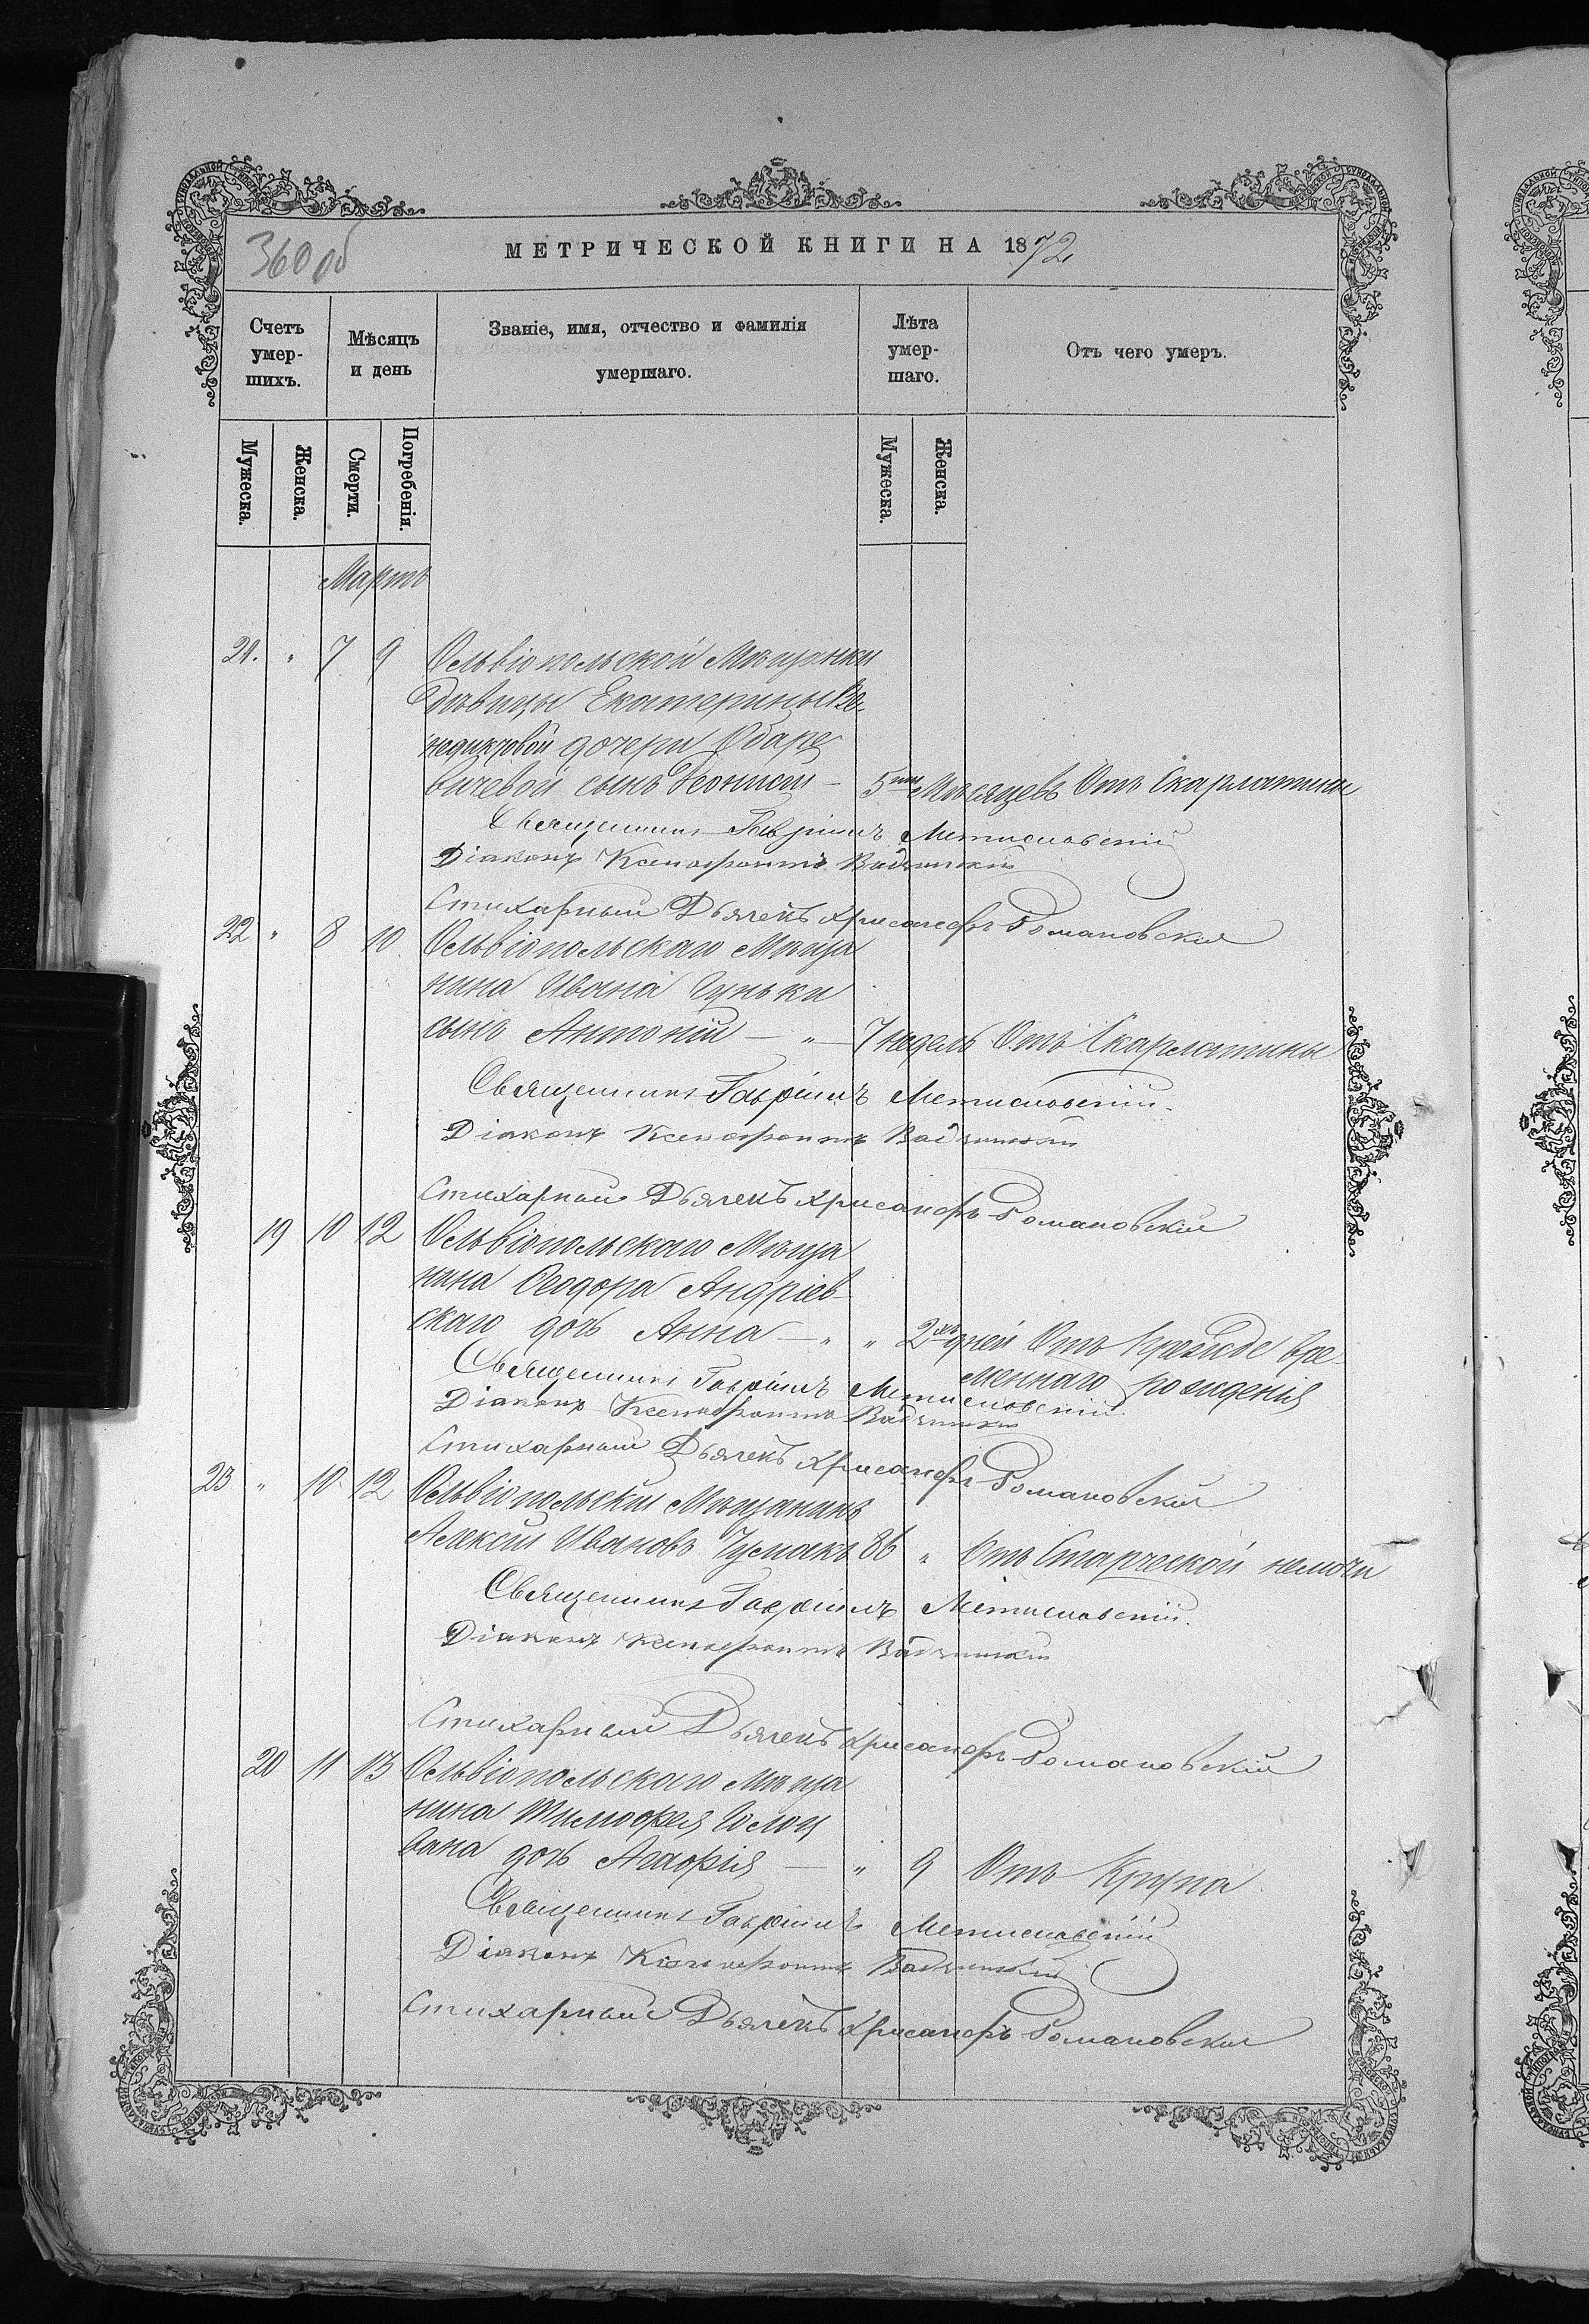 360 об
МЕТРИЧЕСКОЙ КНИГИ НА 1872
Счетъ умер-шихъ.
Мѣсяцъ и день
Званіе, имя, отчество и фамилія умершаго.
Лѣта умер-шаго.
Отъ чего умеръ.
Мужеска.
Женска.
Смерти.
Погребенія.
Мужеска.
Женска.
Мартъ
21. " 7 9 Ольвіопольской Мѣщанки
дѣвицы Екатерины Ве-
недиктовой дочери
вичевой сынъ Леонтій – 5ти Мѣсяцевъ Отъ Скарлатины
Священникъ Гавріилъ Метиславскій
Діаконъ Ксенофонтъ
Стихарный Дьячекъ Хрисанфъ Романовскій
22 " 8 10 Ольвіопольскаго Мѣща
нина Ивана Чуньки
сынъ Антоній — " — 7 недель Отъ Скарлатины
Священникъ Гавріилъ Метиславскій.
Діаконъ Ксенофонтъ
Стихарный Дьячекъ Хрисанфъ Романовскій
19 10 12 Ольвіопольскаго Мѣща
нина Ѳеодора Андріев-
скаго дочь Анна — " " 2хъ дней Отъ Прежде вре-
меннаго рожденія
Священникъ Гавріилъ Метиславскій
Діаконъ Ксенофонтъ
Стихарный Дьячекъ Хрисанфъ Романовскій
23 " 10 12 Ольвіопольскій Мѣщанинъ
Алексій Ивановъ Чумакъ 86 " Отъ Старческой немочи
Священникъ Гавріилъ Метиславскій.
Діаконъ Ксенофонтъ
Стихарный Дьячекъ Хрисанфъ Романовскій
20 11 13 Ольвіопольскаго Мѣща
нина Тимофея Голов
вана дочь — " 9 Отъ Крупа
Священникъ Гавріилъ Метиславскій
Діаконъ Ксенофонтъ
Стихарный Дьячекъ Хрисанфъ Романовскій